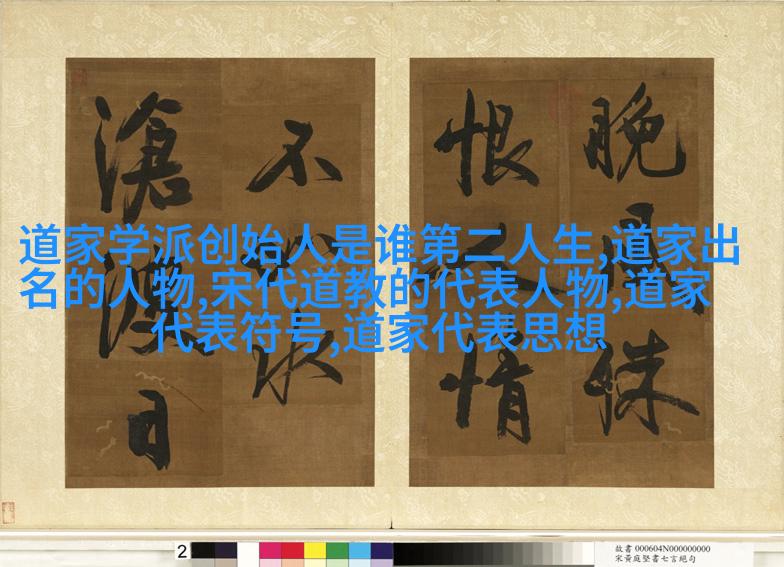 晚風
恨
情
不
水
滄
日
道家学派创始人是谁第二人生,道家出
名的人物,宋代道教的代表人物,道家
代表符号,道家代表思想
2
故書 000604N000000000
宋黃庭堅書七言絕句